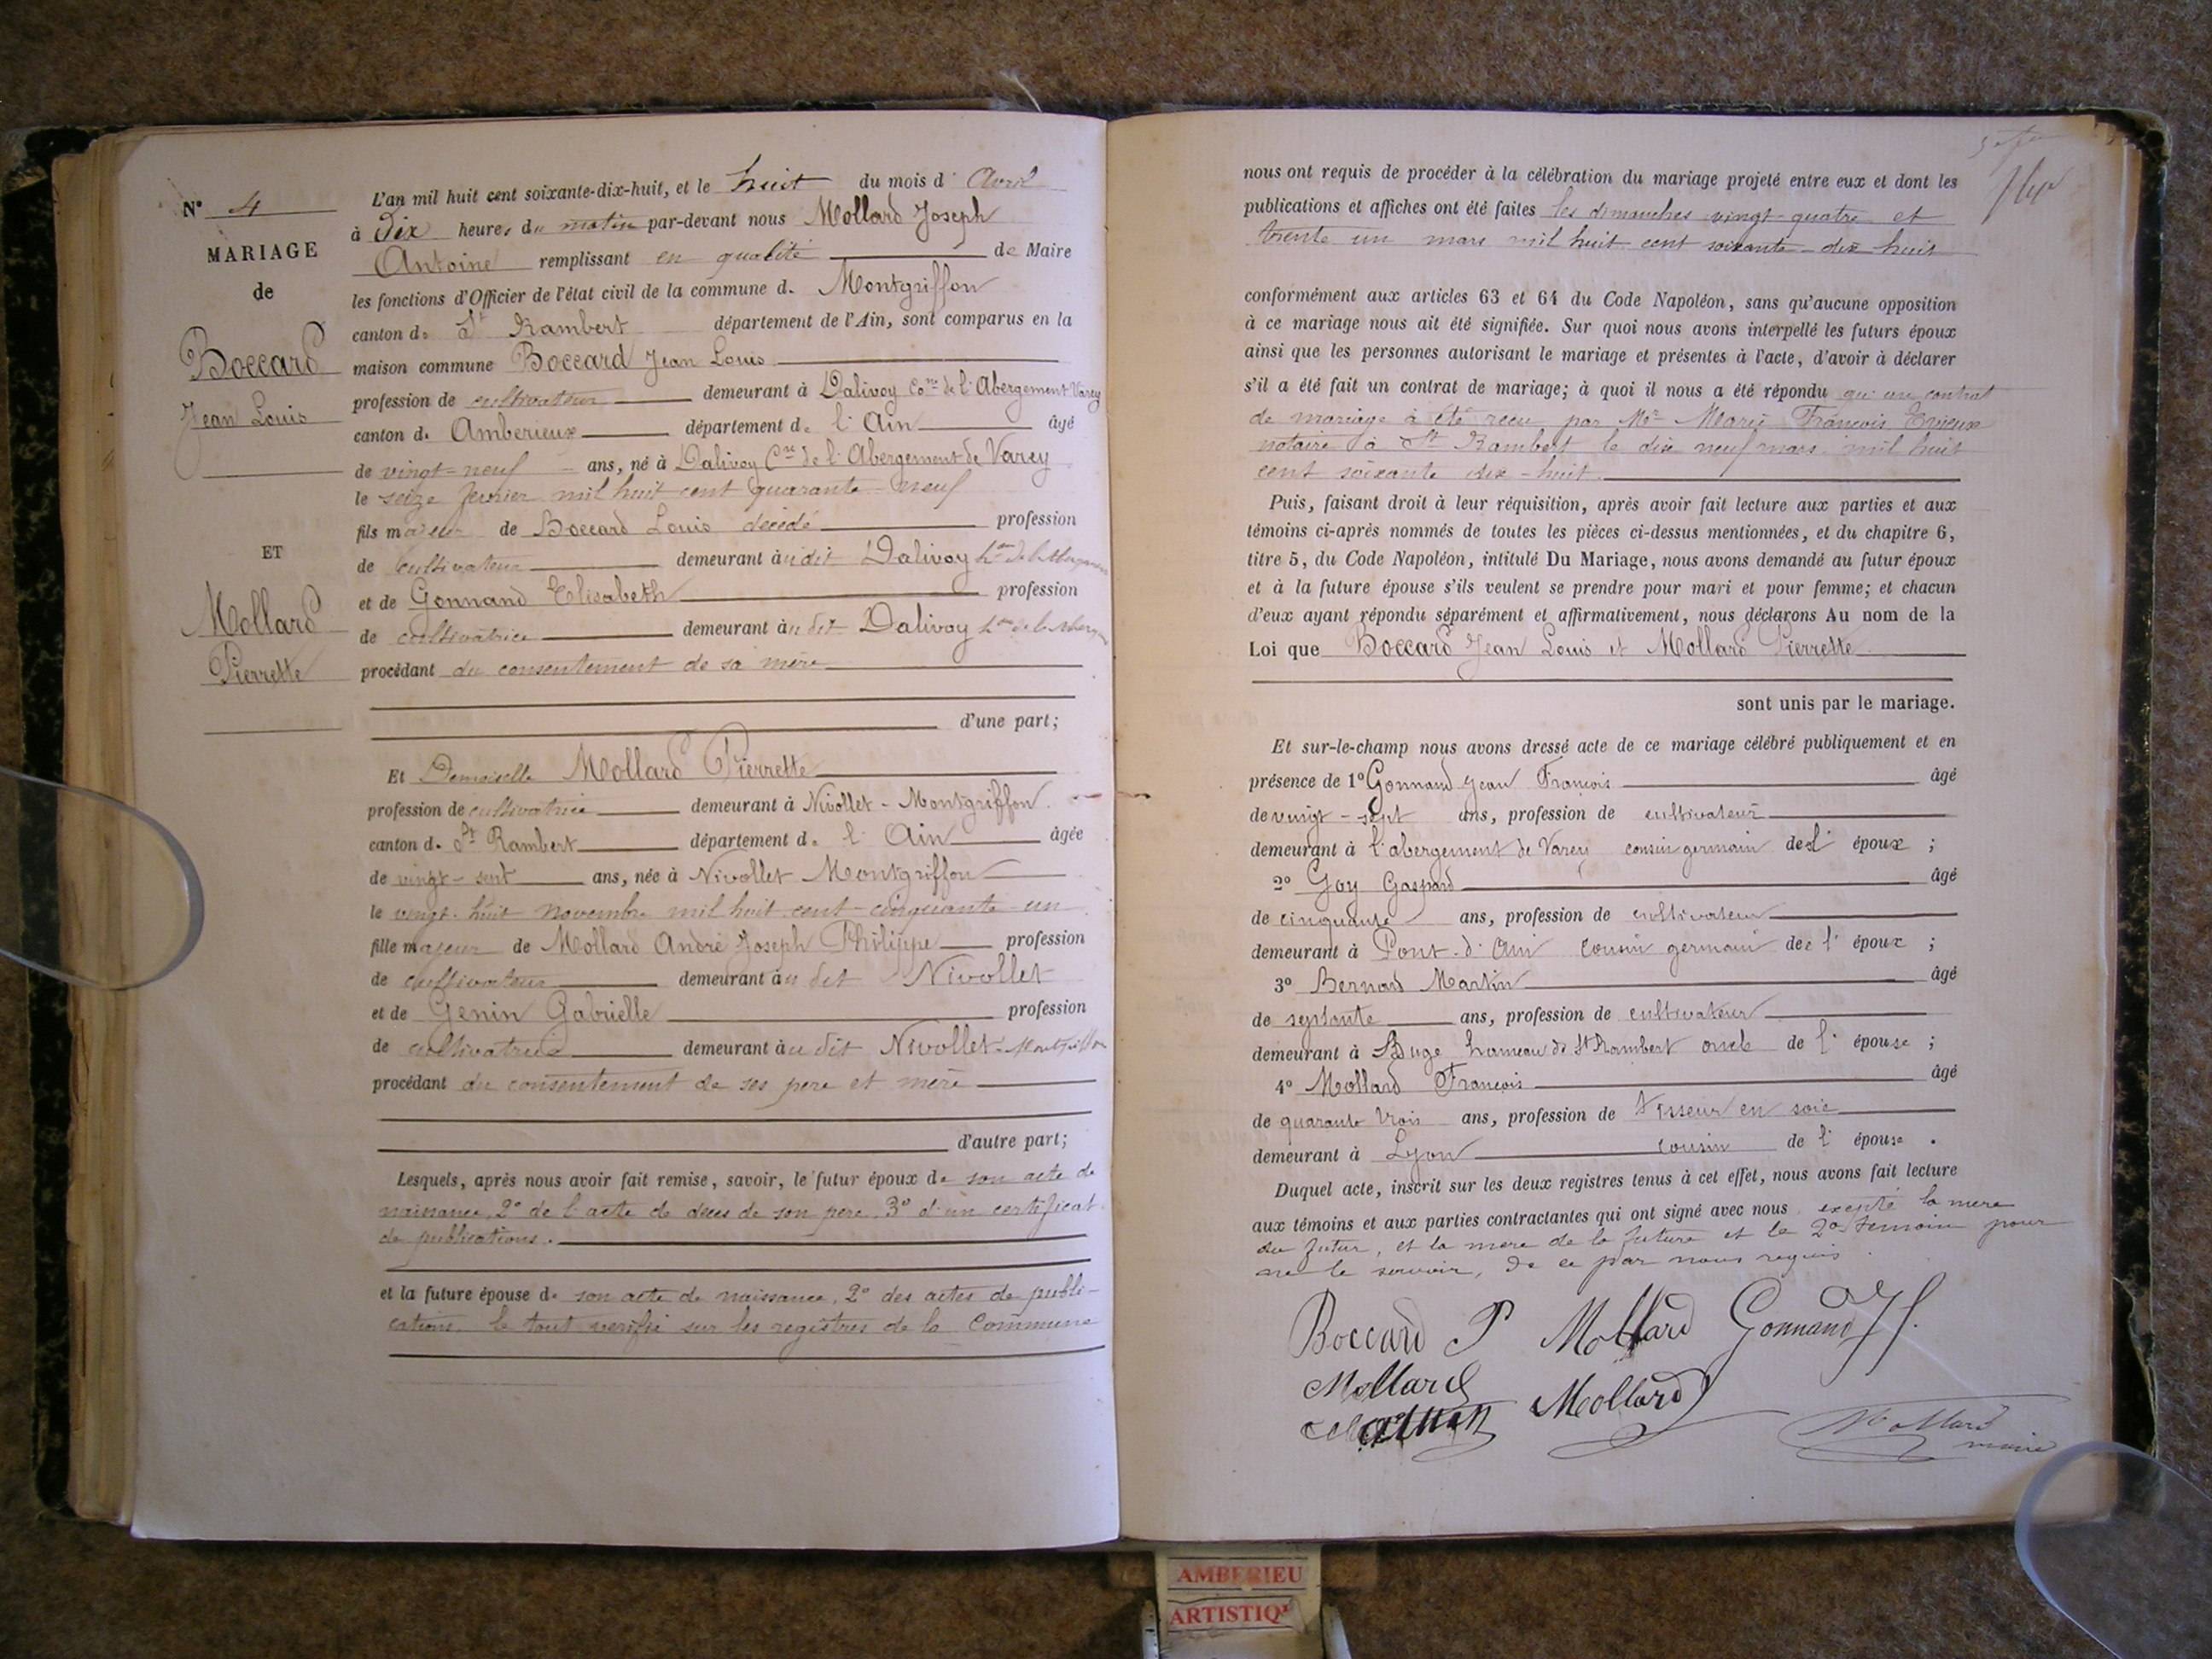 N° 4
MARIAGE
de
Boccard
Jean Louis
ET
Mollard
Pierrette
L'an mil huit cent soixante-dix-huit, et le huit du mois d' Avril
à Dix heures du matin par-devant nous Mollard Joseph
Antoine remplissant en qualité de Maire
les fonctions d'Officier de l'état civil de la commune de Montgriffon
canton de St Rambert département de l'Ain, sont comparus en la
maison commune Boccard Jean Louis
profession de cultivateur demeurant à Dalivoy Cne de l'Abergement Varey
canton d. Amberieux département de l'Ain âgé
de vingt-neuf ans, né à Dalivoy Cne de l'Abergement de Varey
le seize fevrier mil huit cent quarante-neuf
fils majeur de Boccard Louis décédé profession
de cultivateur demeurant au dit Dalivoy
et de Gonnand Elisabeth profession
de cultivatrice demeurant au dit Dalivoy
procédant du consentement de sa mère
d'une part;
Et Demoiselle Mollard Pierrette
profession de cultivatrice demeurant à Nivollet-Montgriffon
canton de St Rambert département de l'Ain âgée
de vingt-sept ans, née à Nivollet Montgriffon
le vingt-huit novembre mil huit cent cinquante-un
fille majeur de Mollard André Joseph Philippe profession
de cultivateur demeurant au dit Nivollet
et de Genin Gabrielle profession
de cultivatrice demeurant au dit Nivollet-Montgriffon
procédant du consentement de ses pere et mère
d'autre part;
Lesquels, après nous avoir fait remise, savoir, le futur époux de son acte de
naissance, 2° de l'acte de deces de son pere, 3° d'un certificat
de publications.
et la future épouse de son acte de naissance, 2° des actes de publi-
cations, le tout verifié sur les registres de la Commune
nous ont requis de procéder à la célébration du mariage projeté entre eux et dont les
publications et affiches ont été faites les dimanches vingt-quatre et
trente un mars mil huit cent soixante-dix huit
conformément aux articles 63 et 64 du Code Napoléon, sans qu'aucune opposition
à ce mariage nous ait été signifiée. Sur quoi nous avons interpellé les futurs époux
ainsi que les personnes autorisant le mariage et présentes à l'acte, d'avoir à déclarer
s'il a été fait un contrat de mariage; à quoi il nous a été répondu qu'un contrat
de mariage à été recu par Me Marie François
notaire à St Rambert le dix neuf mars mil huit
cent soixante dix-huit.
Puis, faisant droit à leur réquisition, après avoir fait lecture aux parties et aux
témoins ci-après nommés de toutes les pièces ci-dessus mentionnées, et du chapitre 6,
titre 5, du Code Napoléon, intitulé Du Mariage, nous avons demandé au futur époux
et à la future épouse s'ils veulent se prendre pour mari et pour femme; et chacun
d'eux ayant répondu séparément et affirmativement, nous déclarons Au nom de la
Loi que Boccard Jean Louis et Mollard Pierrette
sont unis par le mariage.
Et sur-le-champ nous avons dressé acte de ce mariage célébré publiquement et en
présence de 1° Gonnand Jean François âgé
de vingt-sept ans, profession de cultivateur
demeurant à l'abergement de Varey cousin germain de l'époux ;
2° Goy Gaspard âgé
de cinquante ans, profession de cultivateur
demeurant à Pont-d'Ain cousin germain de l'époux ;
3° Bernard Martin âgé
de septante ans, profession de cultivateur
demeurant à Buge hameau de St Rambert oncle de l'épouse ;
4° Mollard François âgé
de quarante trois ans, profession de tisseur en soie
demeurant à Lyon cousin de l'épouse .
Duquel acte, inscrit sur les deux registres tenus à cet effet, nous avons fait lecture
aux témoins et aux parties contractantes qui ont signé avec nous excepté la mere
du futur, et la mere de la future et le 2° temoin pour
ne le savoir, de ce par nous requis
Boccard P Mollard Gonnand J f.
Mollard
Mollard
Mollard
maire
AMBERIEU
ARTISTIQ